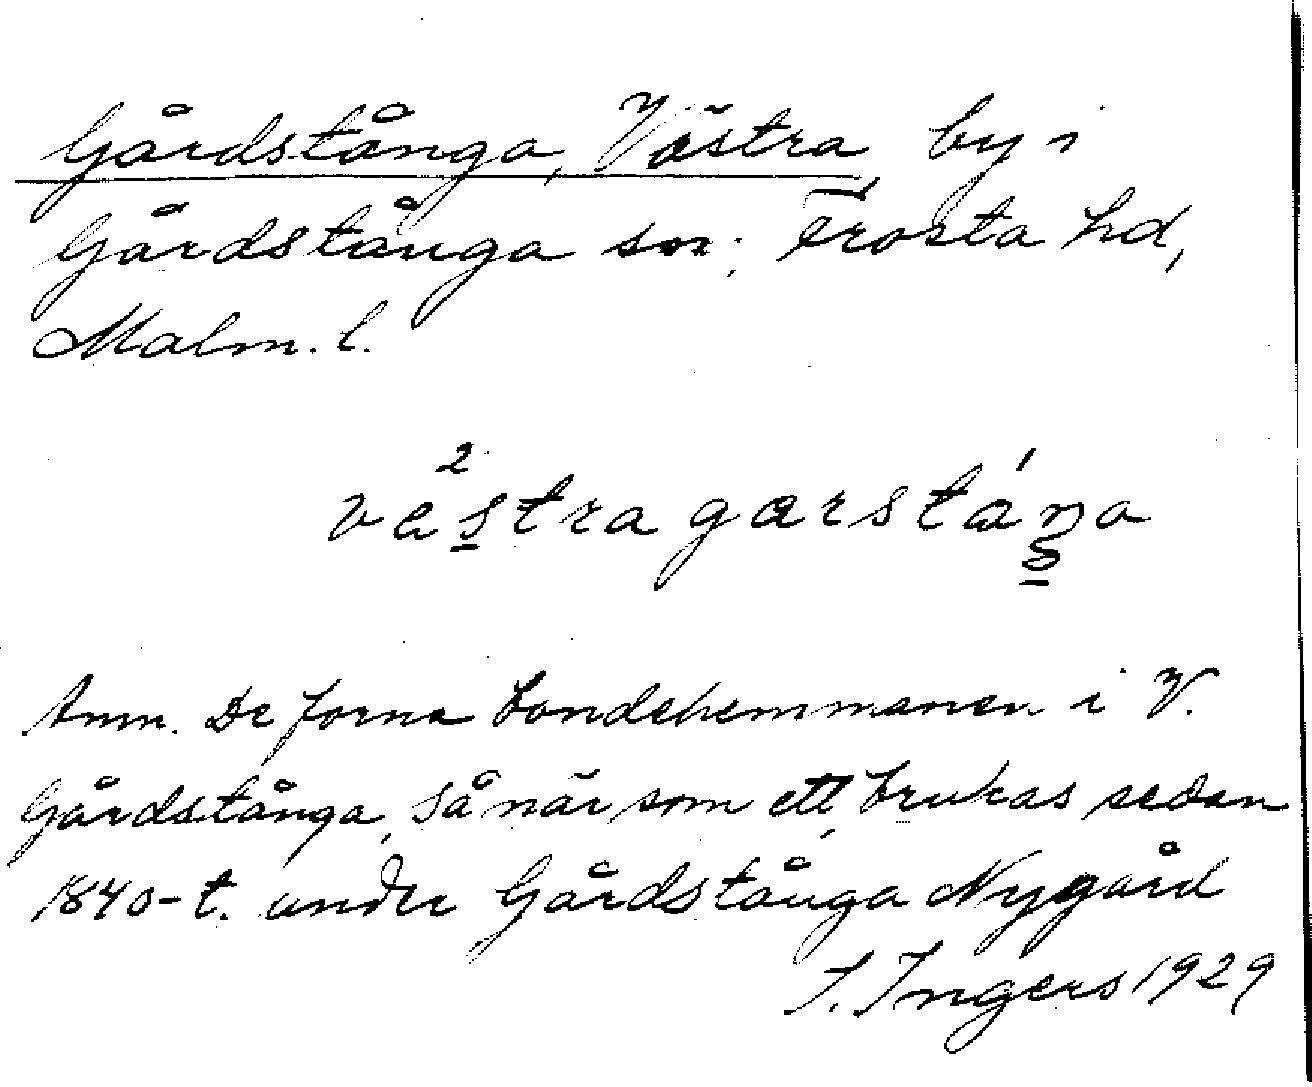 Gårdstånga, Västra, by i
Gårdstånga sn; Frosta hd,
Malm. l.
västra garstáŋa
Anm. De forna bondehemmanen i V.
Gårdstånga, så när som ett, brukas sedan
1840-t. under Gårdstånga Nygård
I. Ingers 1929